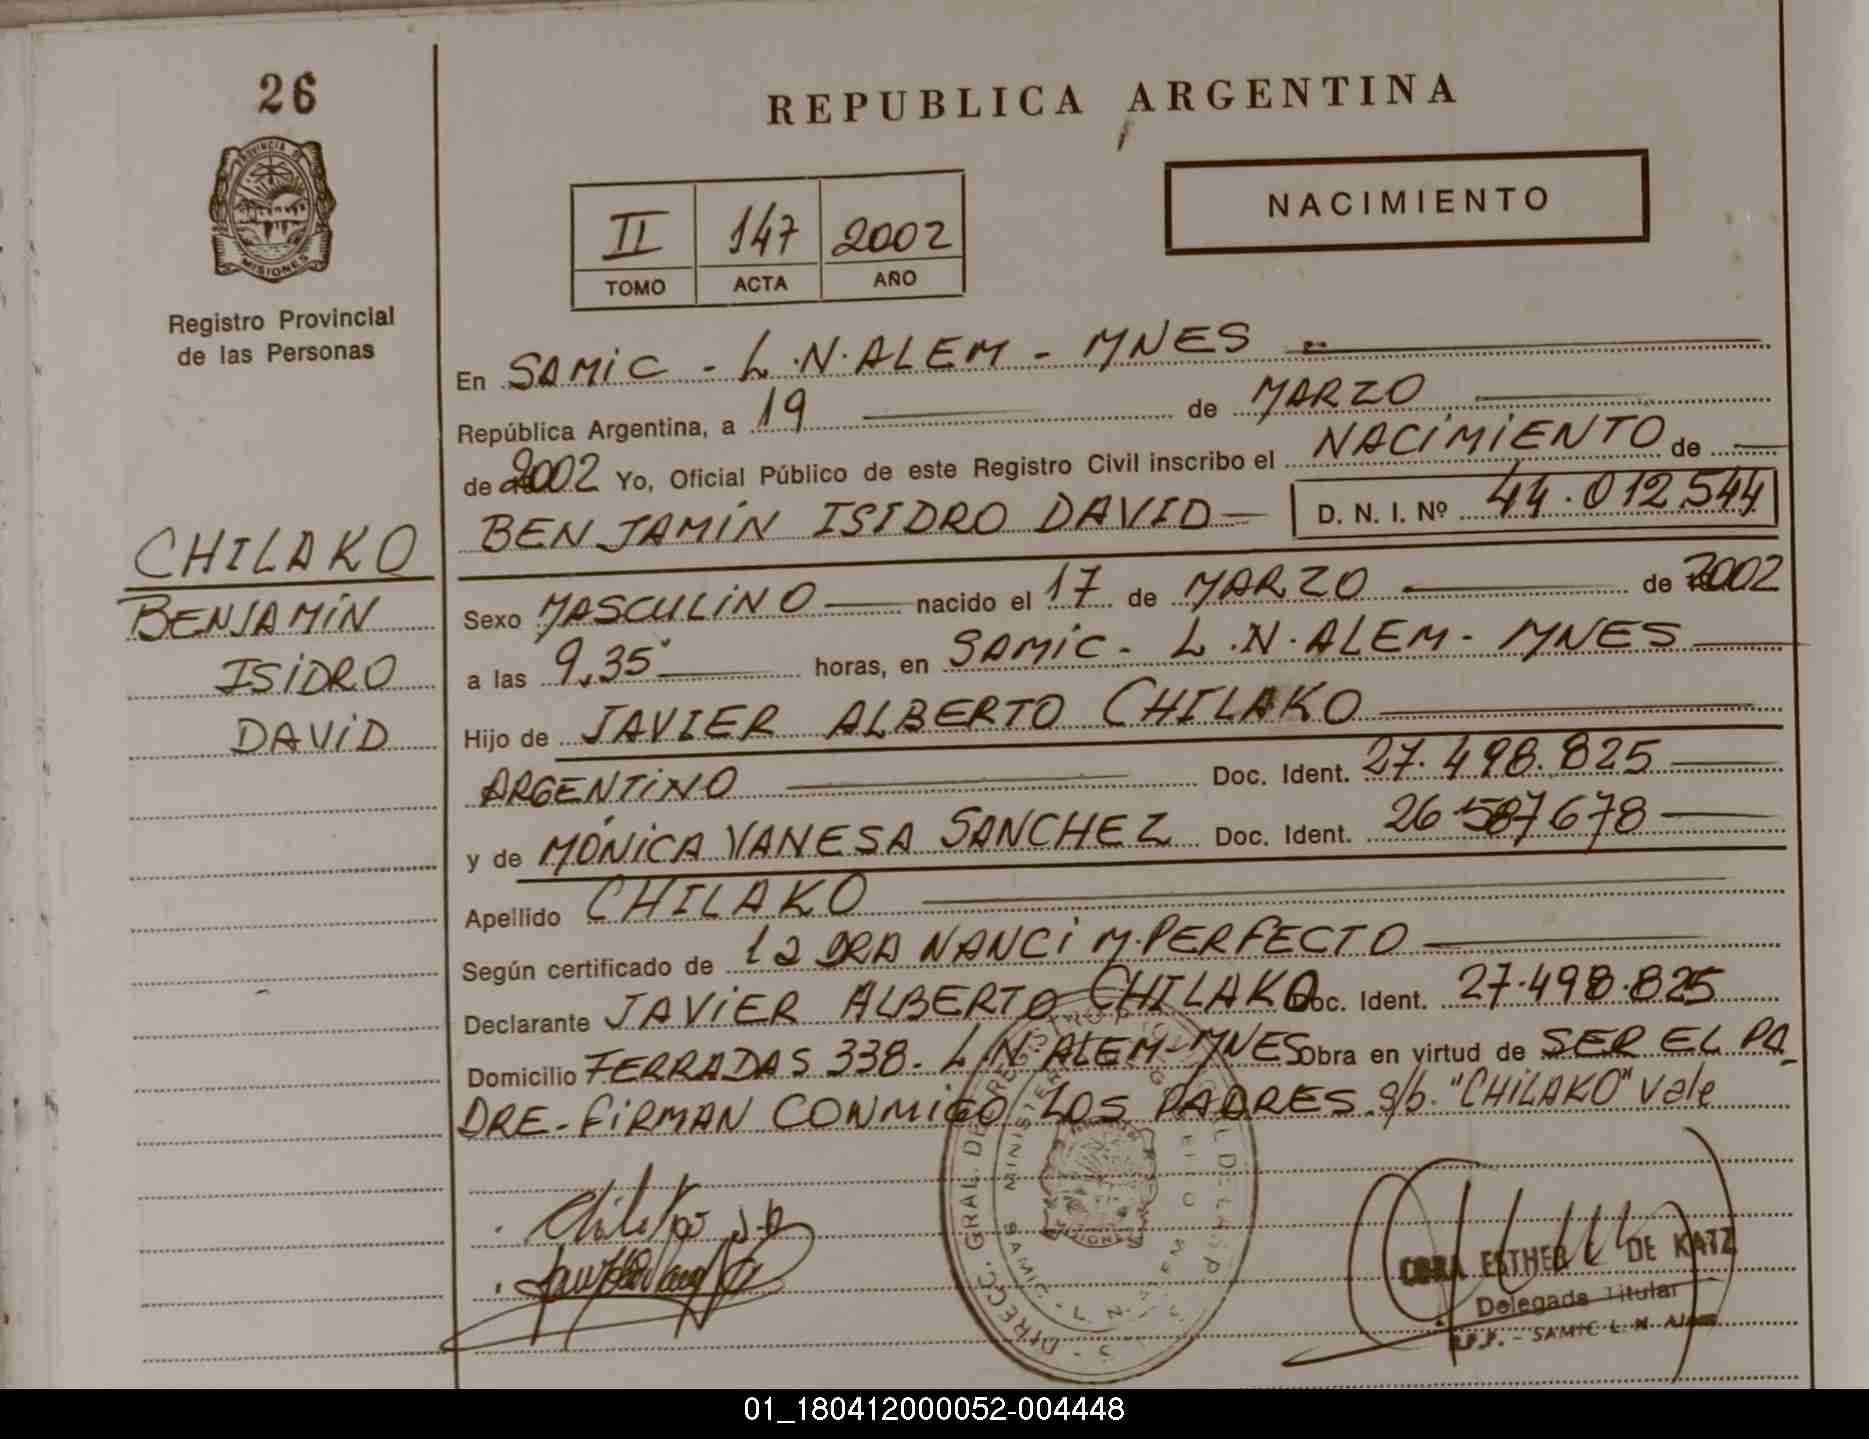 26
PROVINCIA DE
MISIONES
Registro Provincial
de las Personas
CHILAKO
BENJAMIN
ISIDRO
DAVID
REPUBLICA ARGENTINA
NACIMIENTO
II 147 2002
TOMO ACTA AÑO
En SAMIC - L.N.ALEM - MNES
República Argentina, a 19 de MARZO
de 2002 Yo, Oficial Público de este Registro Civil inscribo el NACIMIENTO de
BENJAMIN ISIDRO DAVID D. N. I. Nº 44.012.544
Sexo MASCULINO nacido el 17 de MARZO de 2002
a las 9,35 horas, en SAMIC - L.N.ALEM - MNES
Hijo de JAVIER ALBERTO CHILAKO
ARGENTINO Doc. Ident. 27.498.825
y de MÓNICA VANESA SANCHEZ Doc. Ident. 26 587678
Apellido CHILAKO
Según certificado de la DRA NANCI M. PERFECTO
Declarante JAVIER ALBERTO CHILAKO Doc. Ident. 27.498.825
Domicilio FERRADAS 338. L.N.ALEM-MNES Obra en virtud de SER EL PA_
DRE-FIRMAN CONMIGO LOS PADRES. s/b. "CHILAKO" Vale
ESTHER DE KATZ
Delegada Titular
SAMIC L. N. Alem
01_180412000052-004448